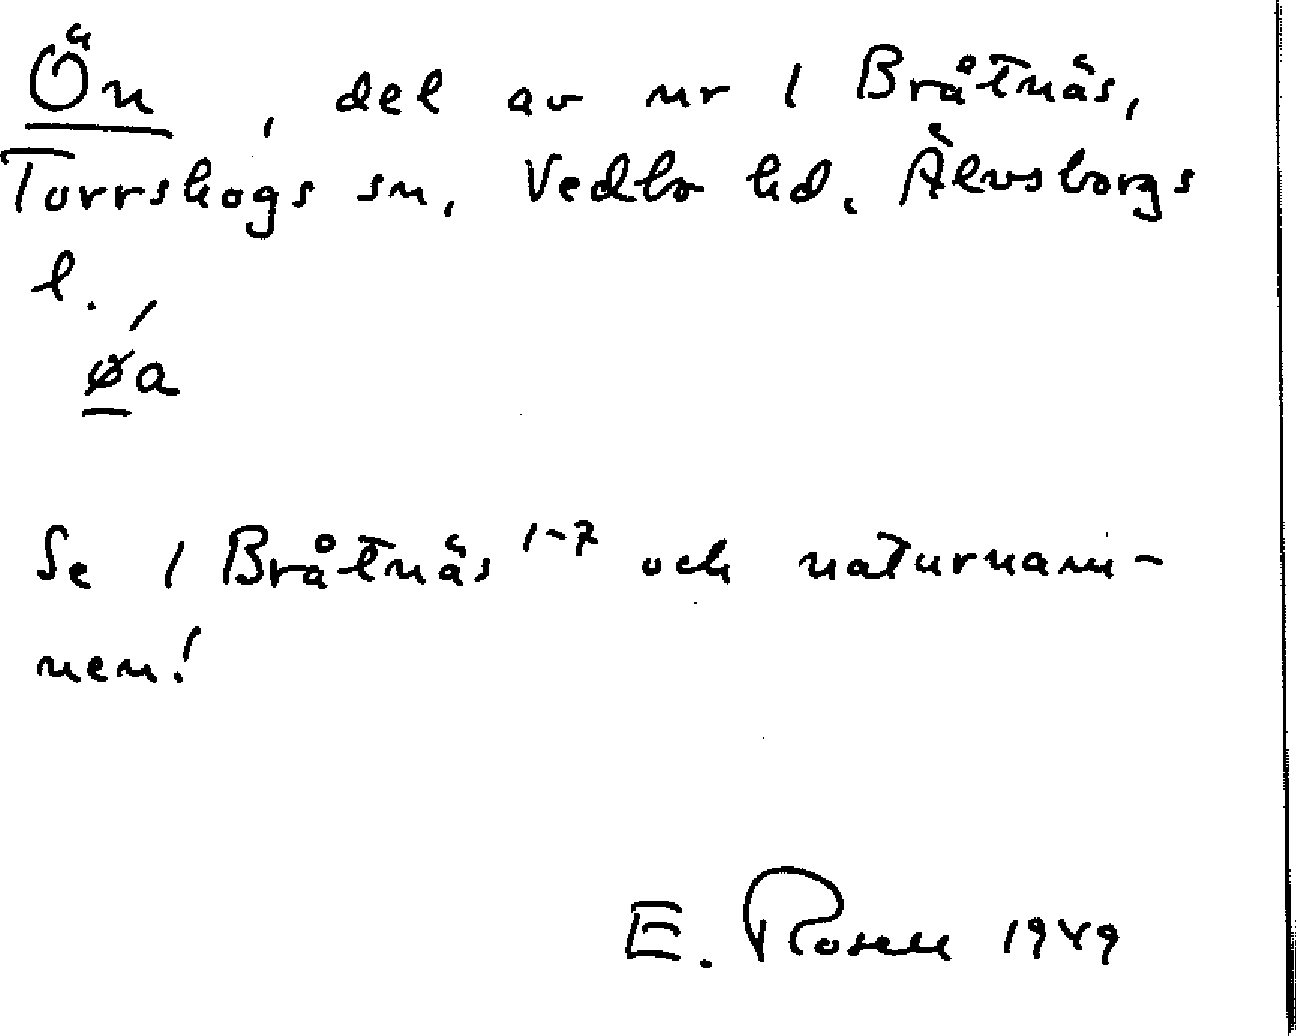 Ön, del av nr 1 Bråtnäs,
Torrskogs sn, Vedbo hd, Älvsborgs
l.
ǿa
Se 1 Bråtnäs 1-7 och naturnam-
nen!
E. Rosell 1949